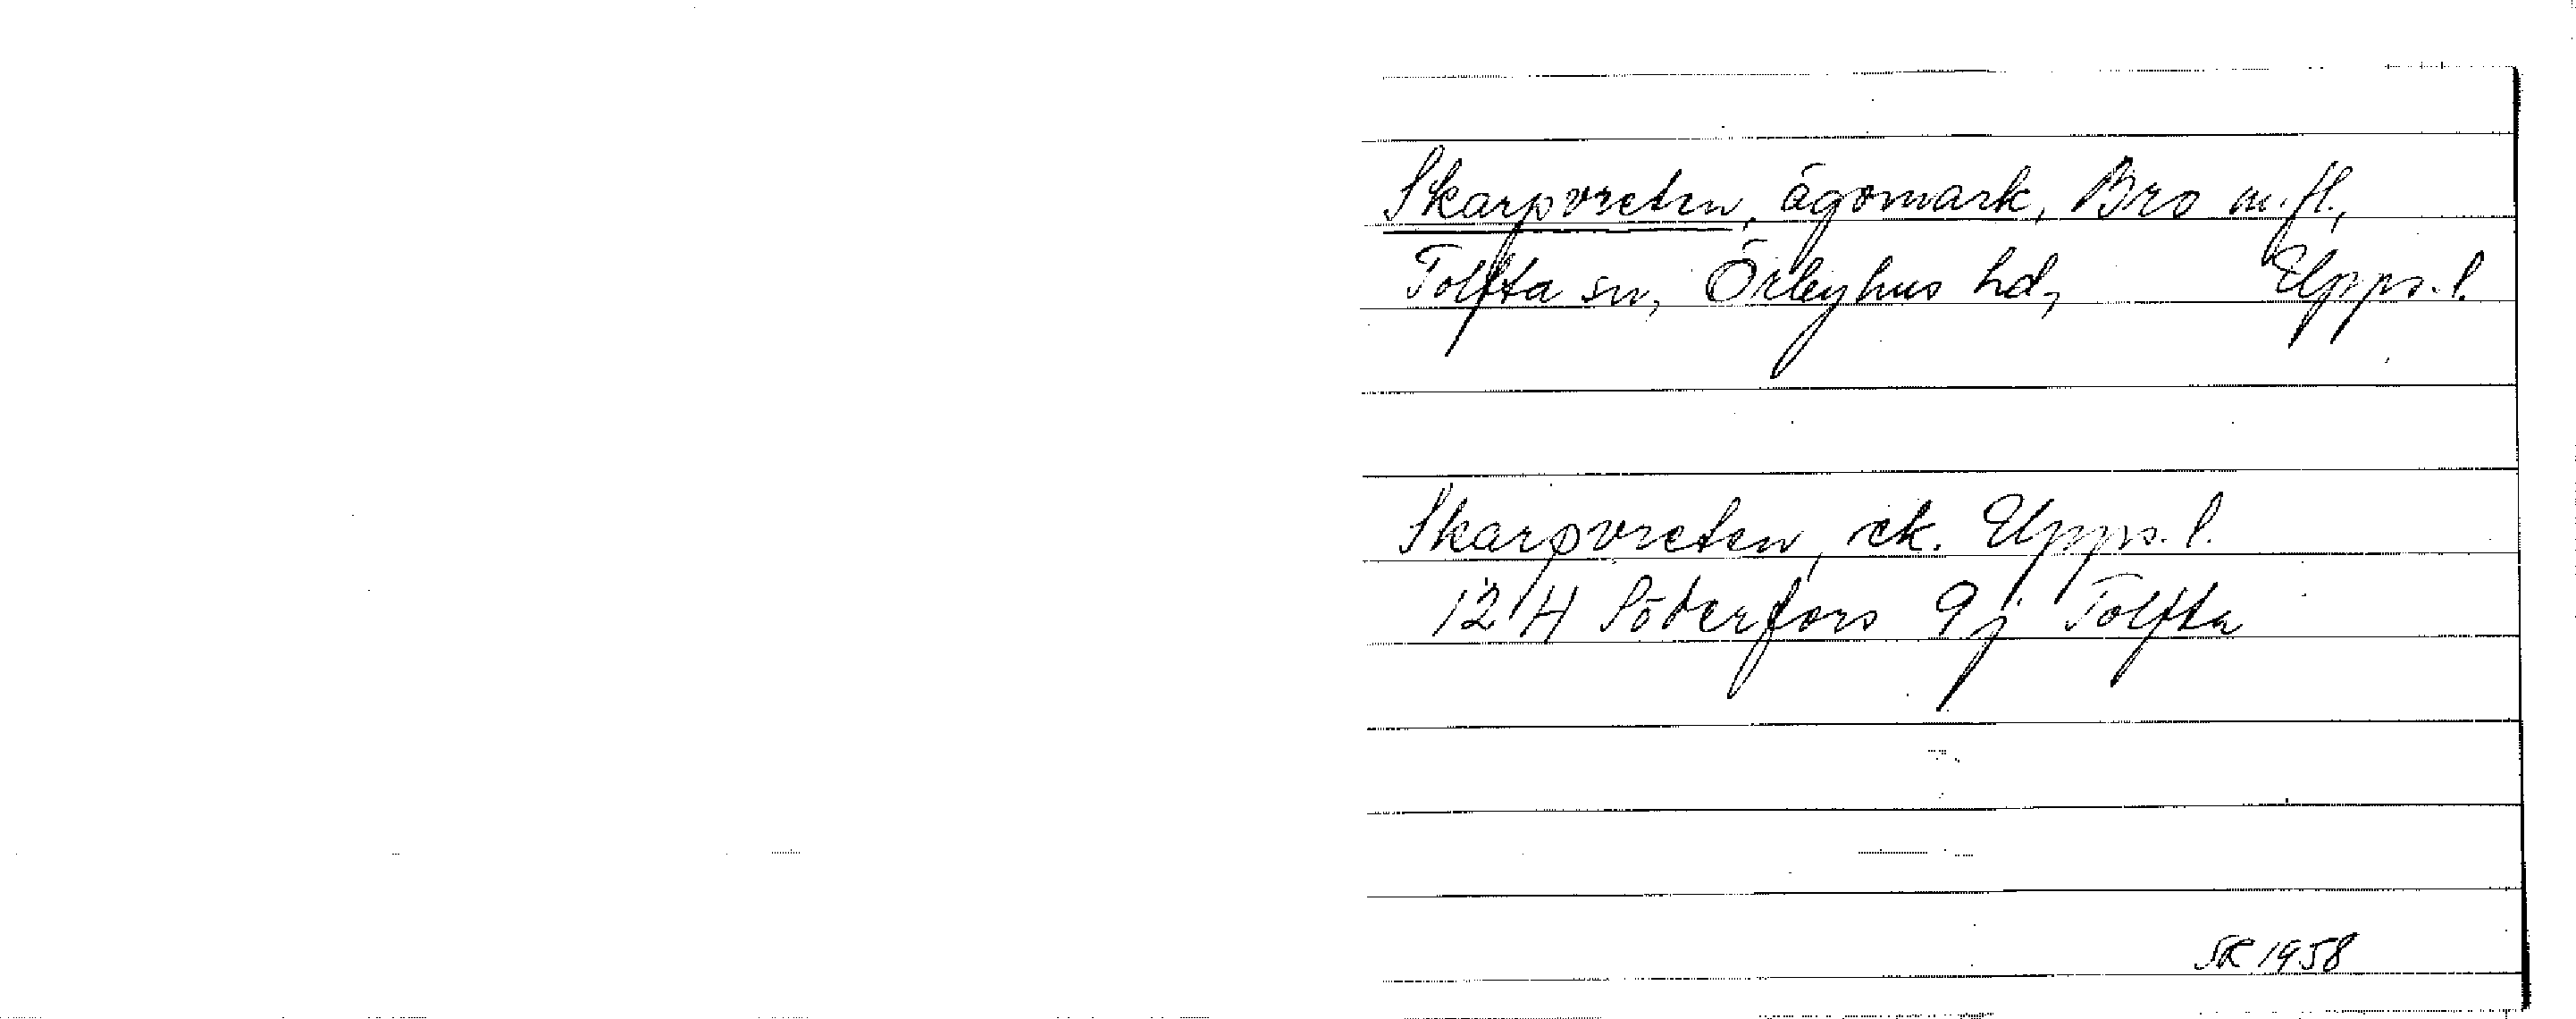 Skarpvreten, ägomark, Bro m.fl.,
Tolfta sn, Örbyhus hd, Upps. l.
Skarpvreten, ek. Upps. l.
12 H Söderfors 9 j Tolfta
SR 1958